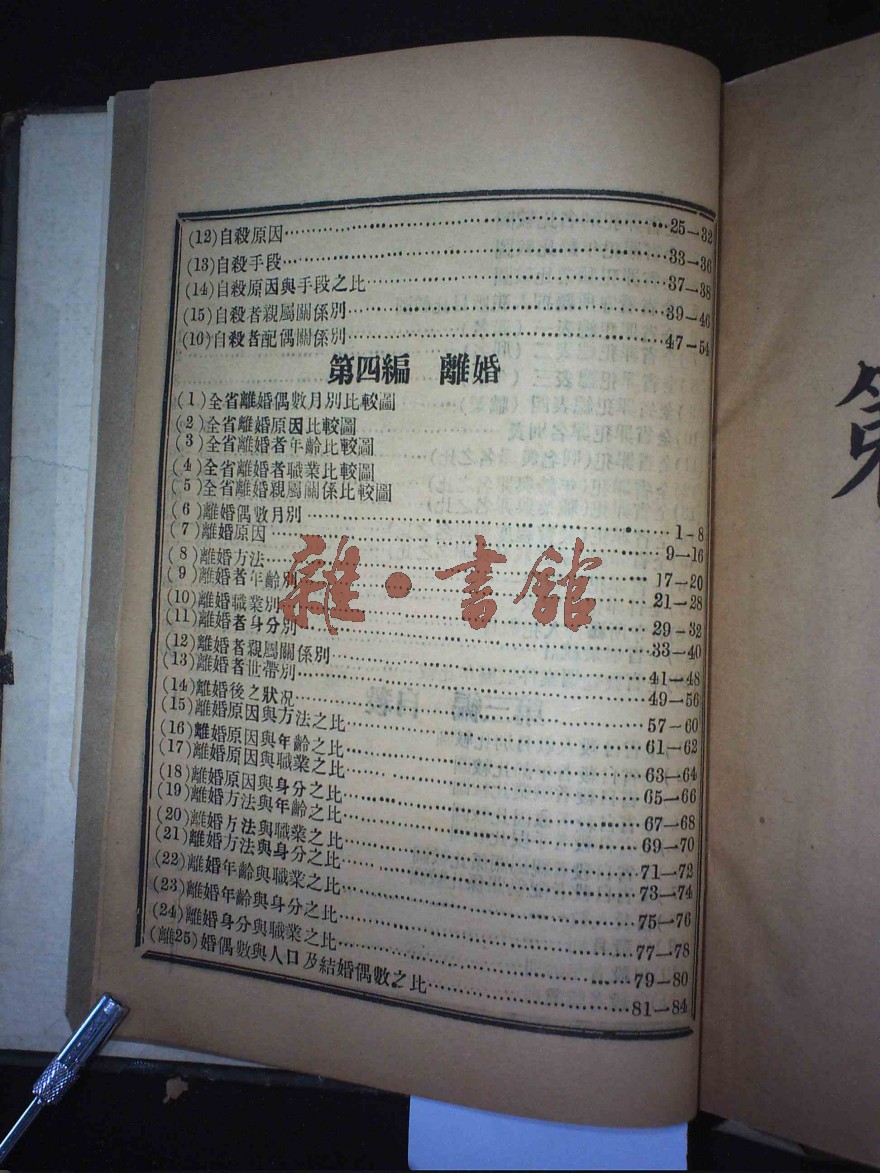 (12)自殺原因……25—32
(13)自殺手段……33—36
(14)自殺原因與手段之比……37—38
(15)自殺者親屬關係別……39—46
(16)自殺者配偶關係別……47—54
第四編　離婚
(1)全省離婚偶數月別比較圖
(2)全省離婚原因比較圖
(3)全省離婚者年齡比較圖
(4)全省離婚者職業比較圖
(5)全省離婚親屬關係比較圖
(6)離婚偶數月別……1-8
(7)離婚原因……9—16
(8)離婚方法……17—20
(9)離婚者年齡別……21—28
(10)離婚職業別……29-32
(11)離婚者身分別……33—40
(12)離婚者親屬關係別……41—48
(13)離婚者世帶別……49—56
(14)離婚後之狀况……57—60
(15)離婚原因與方法之比……61—62
(16)離婚原因與年齡之比……63—64
(17)離婚原因與職業之比……65—66
(18)離婚原因與身分之比……67—68
(19)離婚方法與年齡之比……69—70
(20)離婚方法與職業之比……71—72
(21)離婚方法與身分之比……73—74
(22)離婚年齡與職業之比……75—76
(23)離婚年齡與身分之比……77—78
(24)離婚身分與職業之比……79—80
(離25)婚偶數與人口及結婚偶數之比……81—84
雜·書館
第